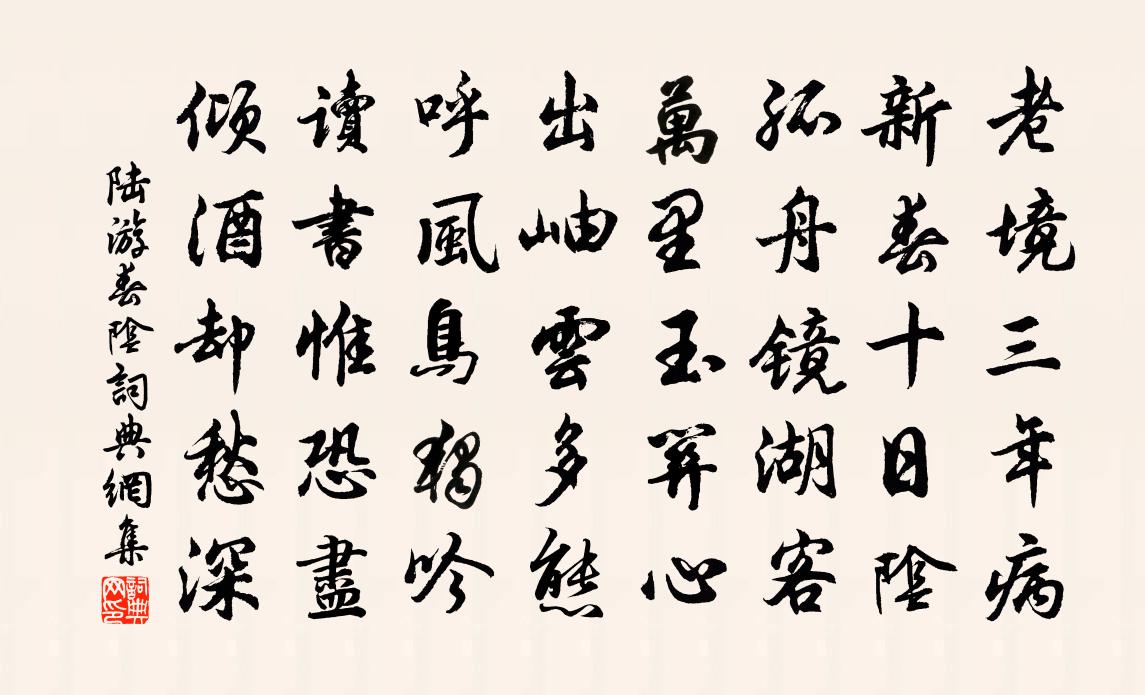 老境三年病
新春十日陰
孤舟鏡湖客
萬里玉關心
出岫雲多態
呼風鳥獨吟
讀書惟恐盡
傾酒却愁深
陸游春陰詞典網集
詞典網印